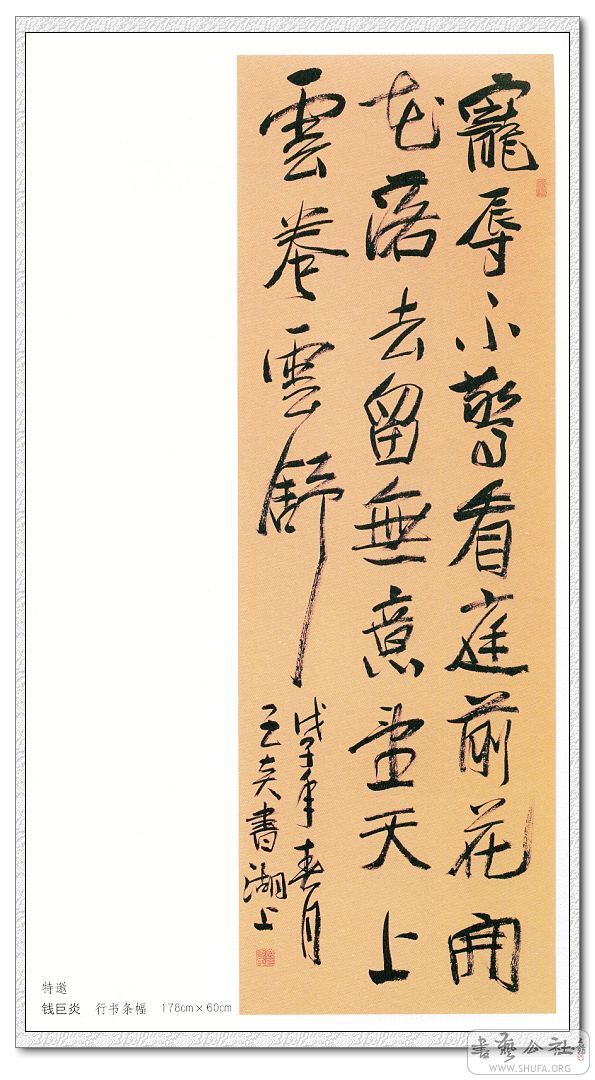 寵辱不驚看庭前花開
花落去留無意望天上
雲卷雲舒
戊子年春月
巨炎書湖上
特邀
钱巨炎 行书条幅 178cm×60cm
書藝公社
WWW.SHUFA.ORG